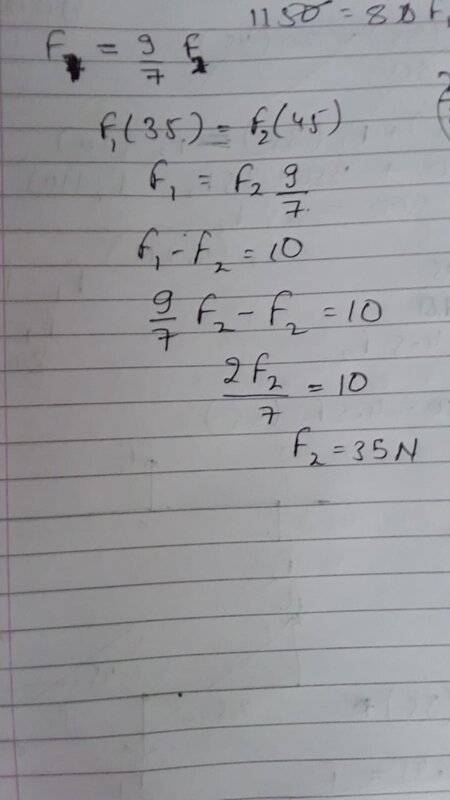 1150 = 80 F
F₁ = 9/7 F₂
F₁(35) = F₂(45)
F₁ = F₂ 9/7
F₁ - F₂ = 10
9/7 F₂ - F₂ = 10
2F₂/7 = 10
F₂ = 35 N